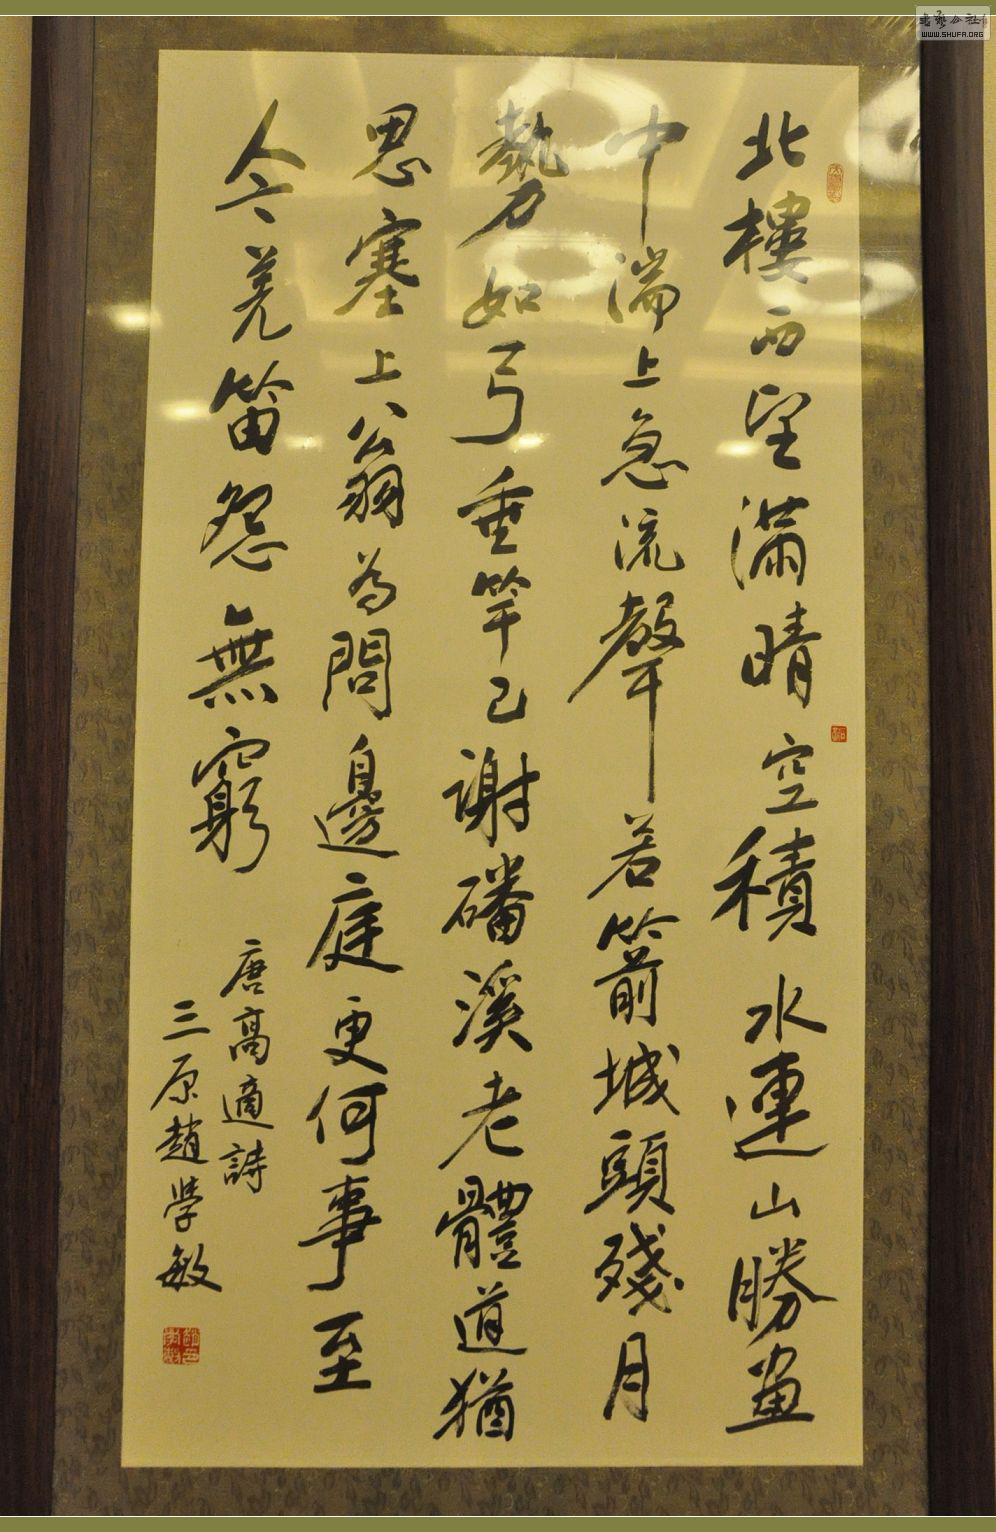 北樓西望滿晴空積水連山勝畫
中湍上急流聲若箭城頭殘月
勢如弓垂竿已謝磻溪老體道猶
思塞上翁為問邊庭更何事至
今羌笛怨無窮
唐高適詩
三原趙學敏
WWW.SHUFA.ORG